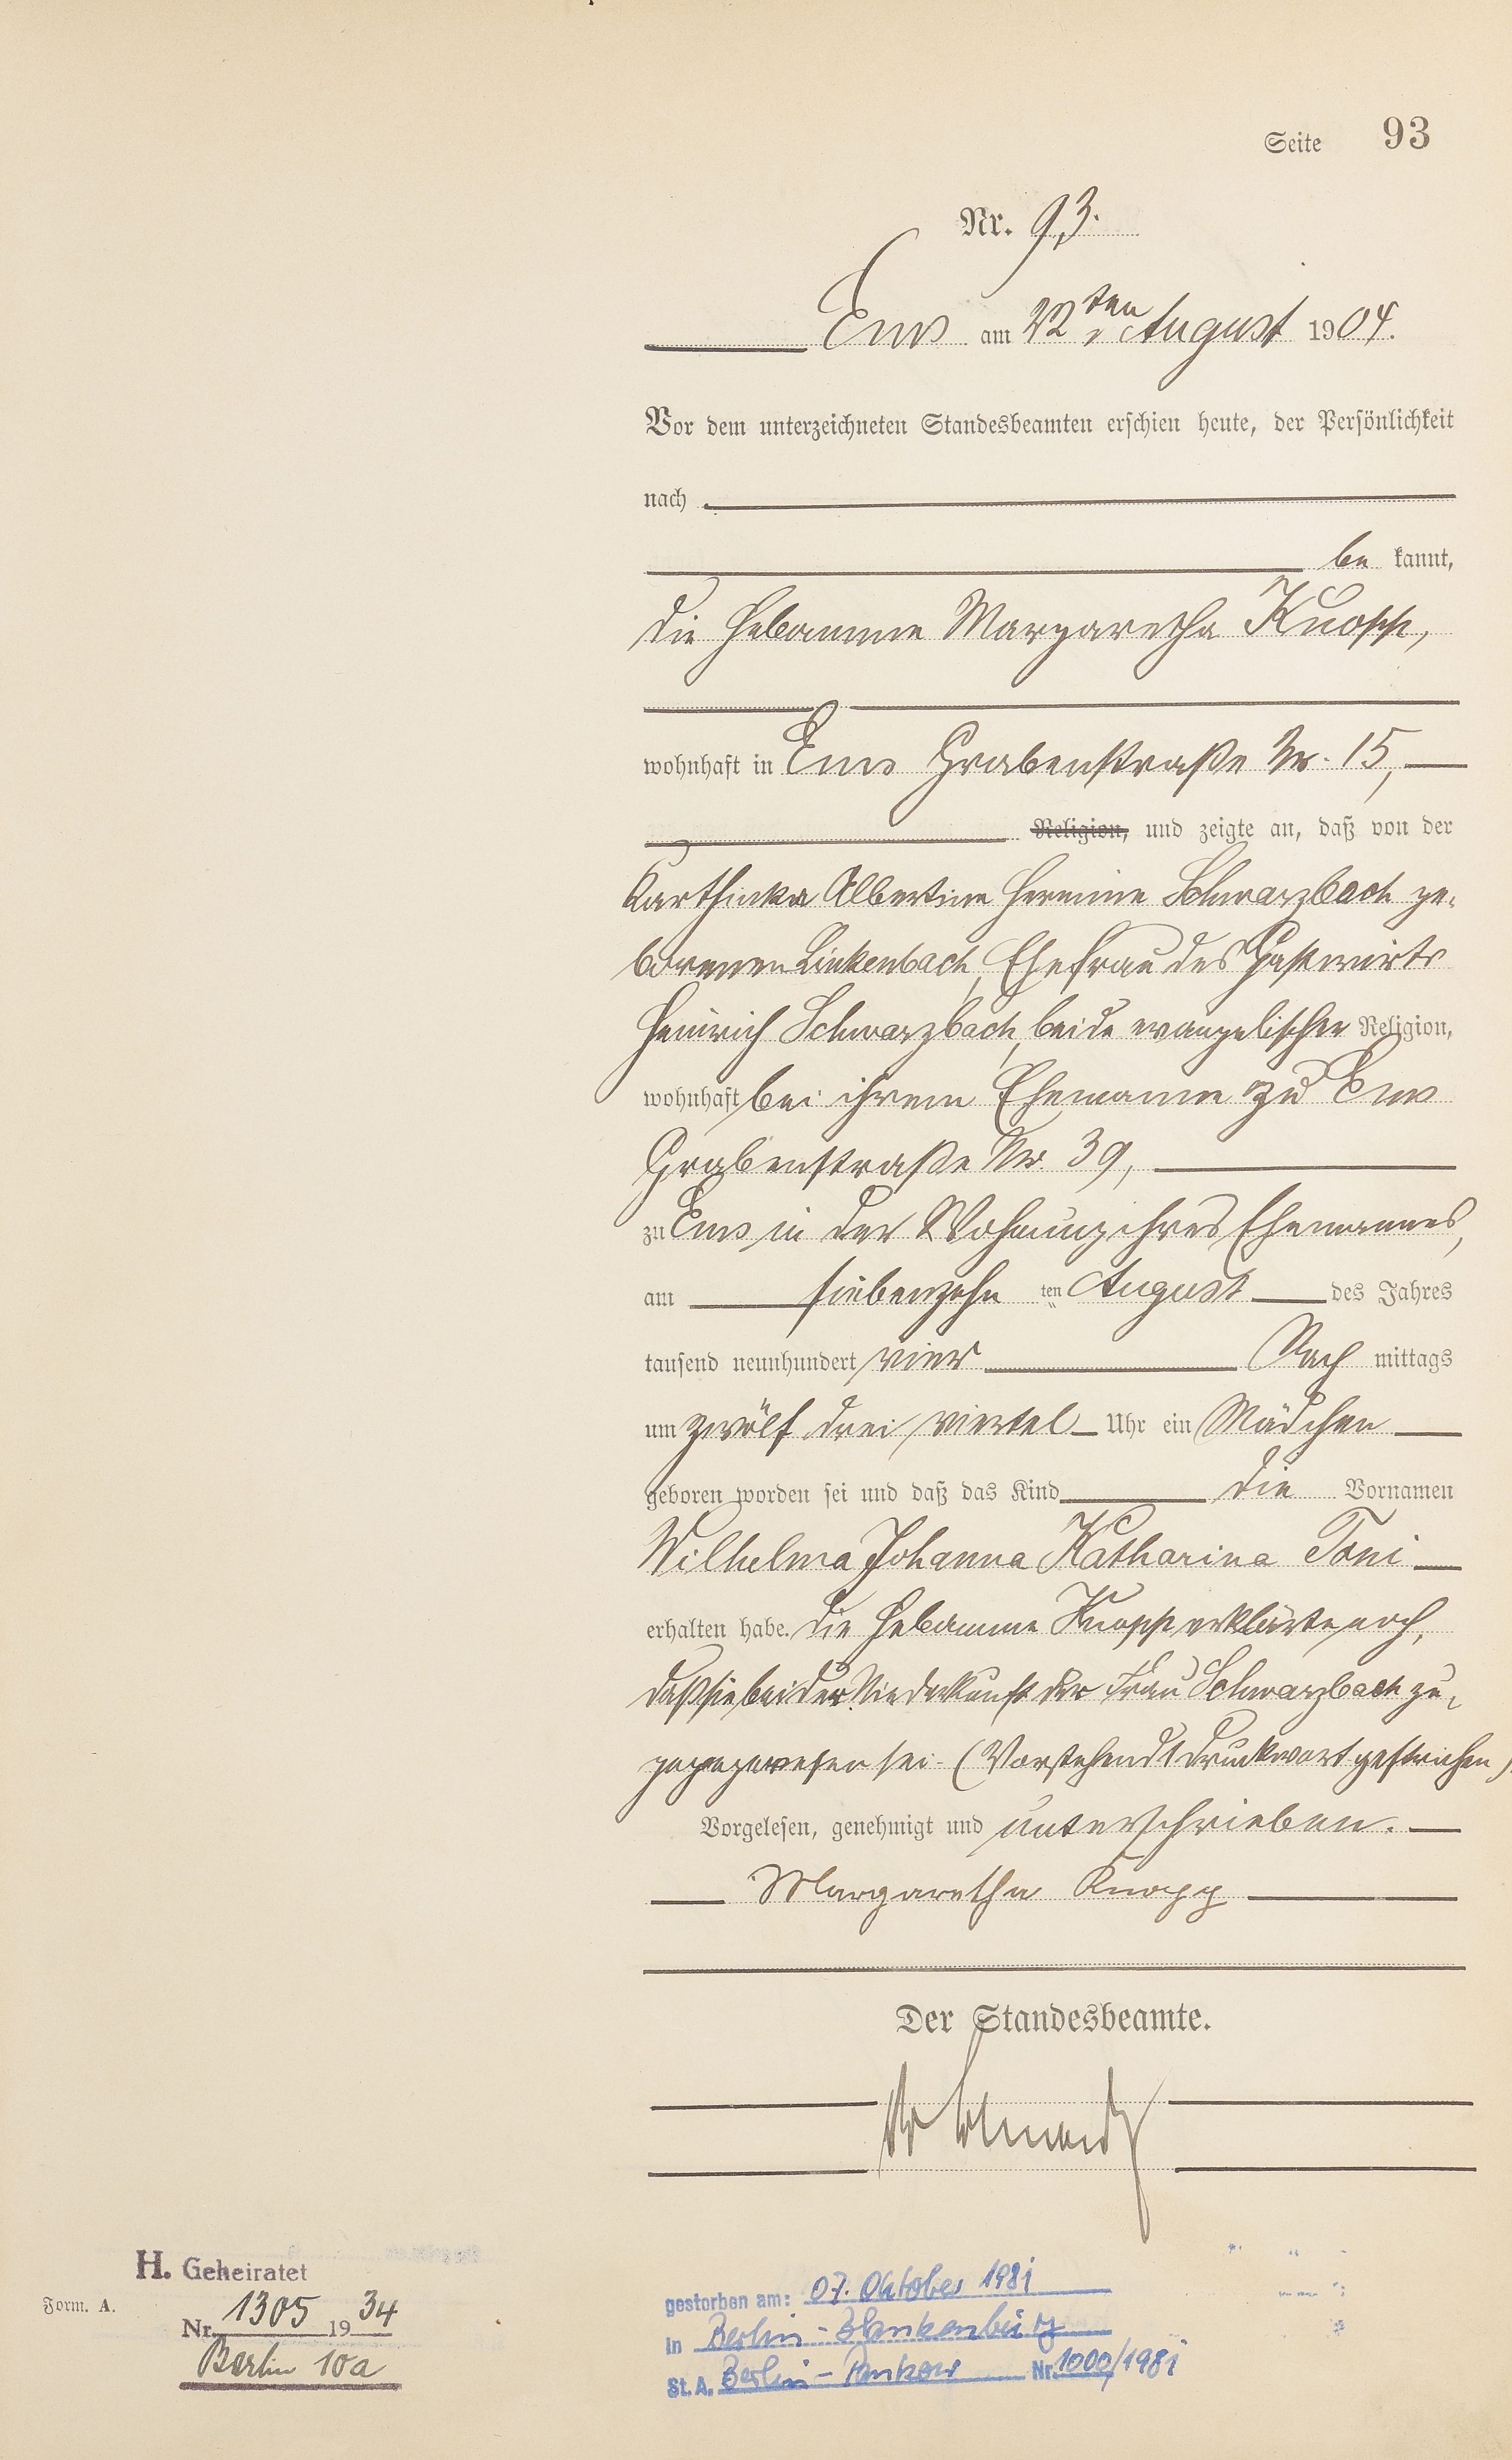 Seite 93
Nr. 93.
Ems am 22ten August 1904.
Vor dem unterzeichneten Standesbeamten erschien heute, der Persönlichkeit
nach
be kannt,
die Hebamme Margaretha Knopp,
wohnhaft in Ems Grabenstraße Nr. 15,
Religion, und zeigte an, daß von der
Karthinka Albertine Hermine Schwarzbach ge-
borenen Linkenbach, Ehefrau des Gastwirts
Heinrich Schwarzbach, beide evangelischer Religion,
wohnhaft bei ihrem Ehemanne zu Ems
Grabenstraße Nr. 39,
zu Ems in der Wohnung ihres Ehemannes,
am siebenzehn ten August des Jahres
tausend neunhundert vier Nach mittags
um zwölf drei viertel Uhr ein Mädchen
geboren worden sei und daß das Kind die Vornamen
Wilhelma Johanna Katharina Toni
erhalten habe. Die Hebamme Knopp erklärte noch,
daß sie bei der Niederkunft der Frau Schwarzbach zu-
gegen gewesen sei. (Vorstehend 1 Druckwort gestrichen)
Vorgelesen, genehmigt und unterschrieben.
Margaretha Knopp
Der Standesbeamte.
H. Geheiratet
Form. A.
Nr. 1305 1934
Berlin 10a
gestorben am: 07. Oktober 1981
in Berlin-Blankenburg
St. A. Berlin-Pankow Nr. 1000/1981